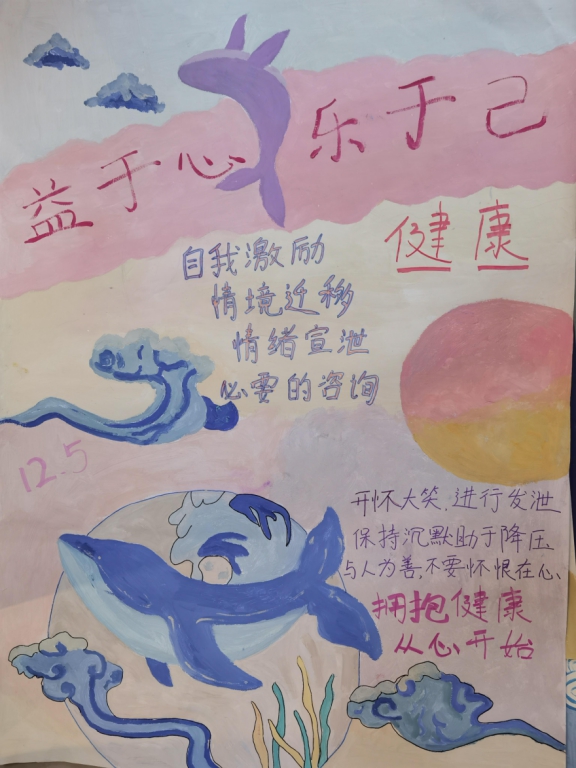 益于心 乐于己
健康
自我激励
情境迁移
情绪宣泄
必要的咨询
12.5
开怀大笑,进行发泄
保持沉默助于降压
与人为善,不要怀恨在心、
拥抱健康
从心开始